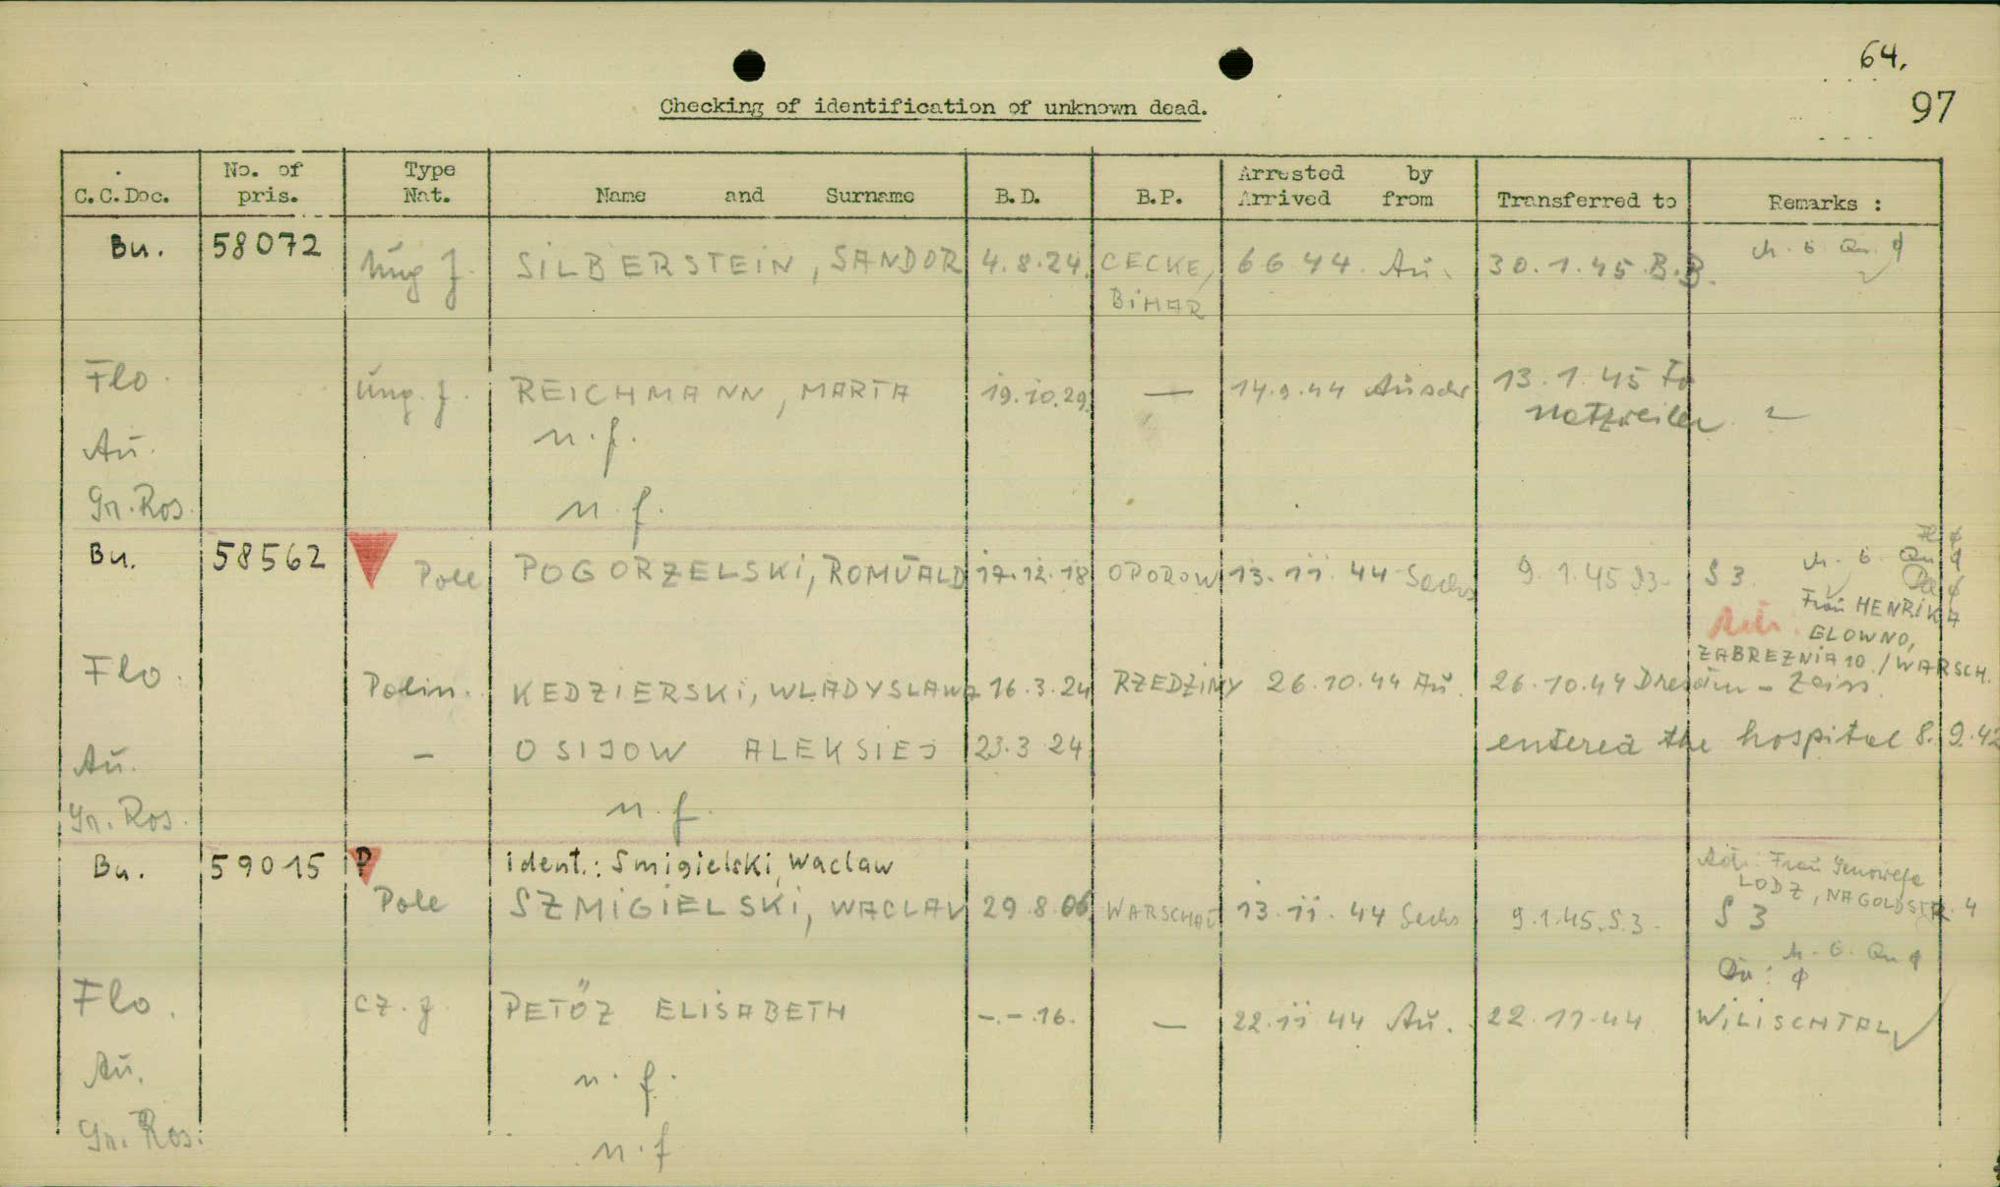 64.
97
Checking of identification of unknown dead.
C.C.Doc. No. of pris. Type Nat. Name and Surname B.D. B.P. Arrested by Arrived from Transferred to Remarks :
Bu. 58072 Ung J. SILBERSTEIN, SANDOR 4.8.24. CECKE, BIHAR 6 6 44. Au. 30.1.45 B.B.
Flo. Ung. J. REICHMANN, MARTA 19.10.29. — 14.9.44 13.1.45 to Natzweiler
Au. n.f.
Gr. Ros. n.f.
Bu. 58562 Pole POGORZELSKI, ROMUALD 17.12.18 OPOROW 13.11.44 Sachs 9.1.45 S3
Frau HENRIKA
GLOWNO,
ZABREZNIA 10 / WARSCH.
Flo. Polin. KEDZIERSKI, WLADYSLAWA 16.3.24 RZEDZINY 26.10.44 Au. 26.10.44 Dresden - Zeiss.
Au. — OSIJOW ALEKSIEJ 23.3 24 entered the hospital 8.9.42
Gr. Ros. n.f.
Bu. 59015 P ident.: Smigielski, Waclaw
Adr. Frau Genowefa
LODZ, NAGOLDSTR. 4
Pole SZMIGIELSKI, WACLAV 29.8.06 WARSCHAU 13.11.44 Sachs 9.1.45. S.3. S 3
Flo. cz. J. PETÖZ ELISABETH -.-.16. — 22.11 44 Au. 22.11.44 WILISCHTAL
Au. n.f.
Gr. Ros. n.f